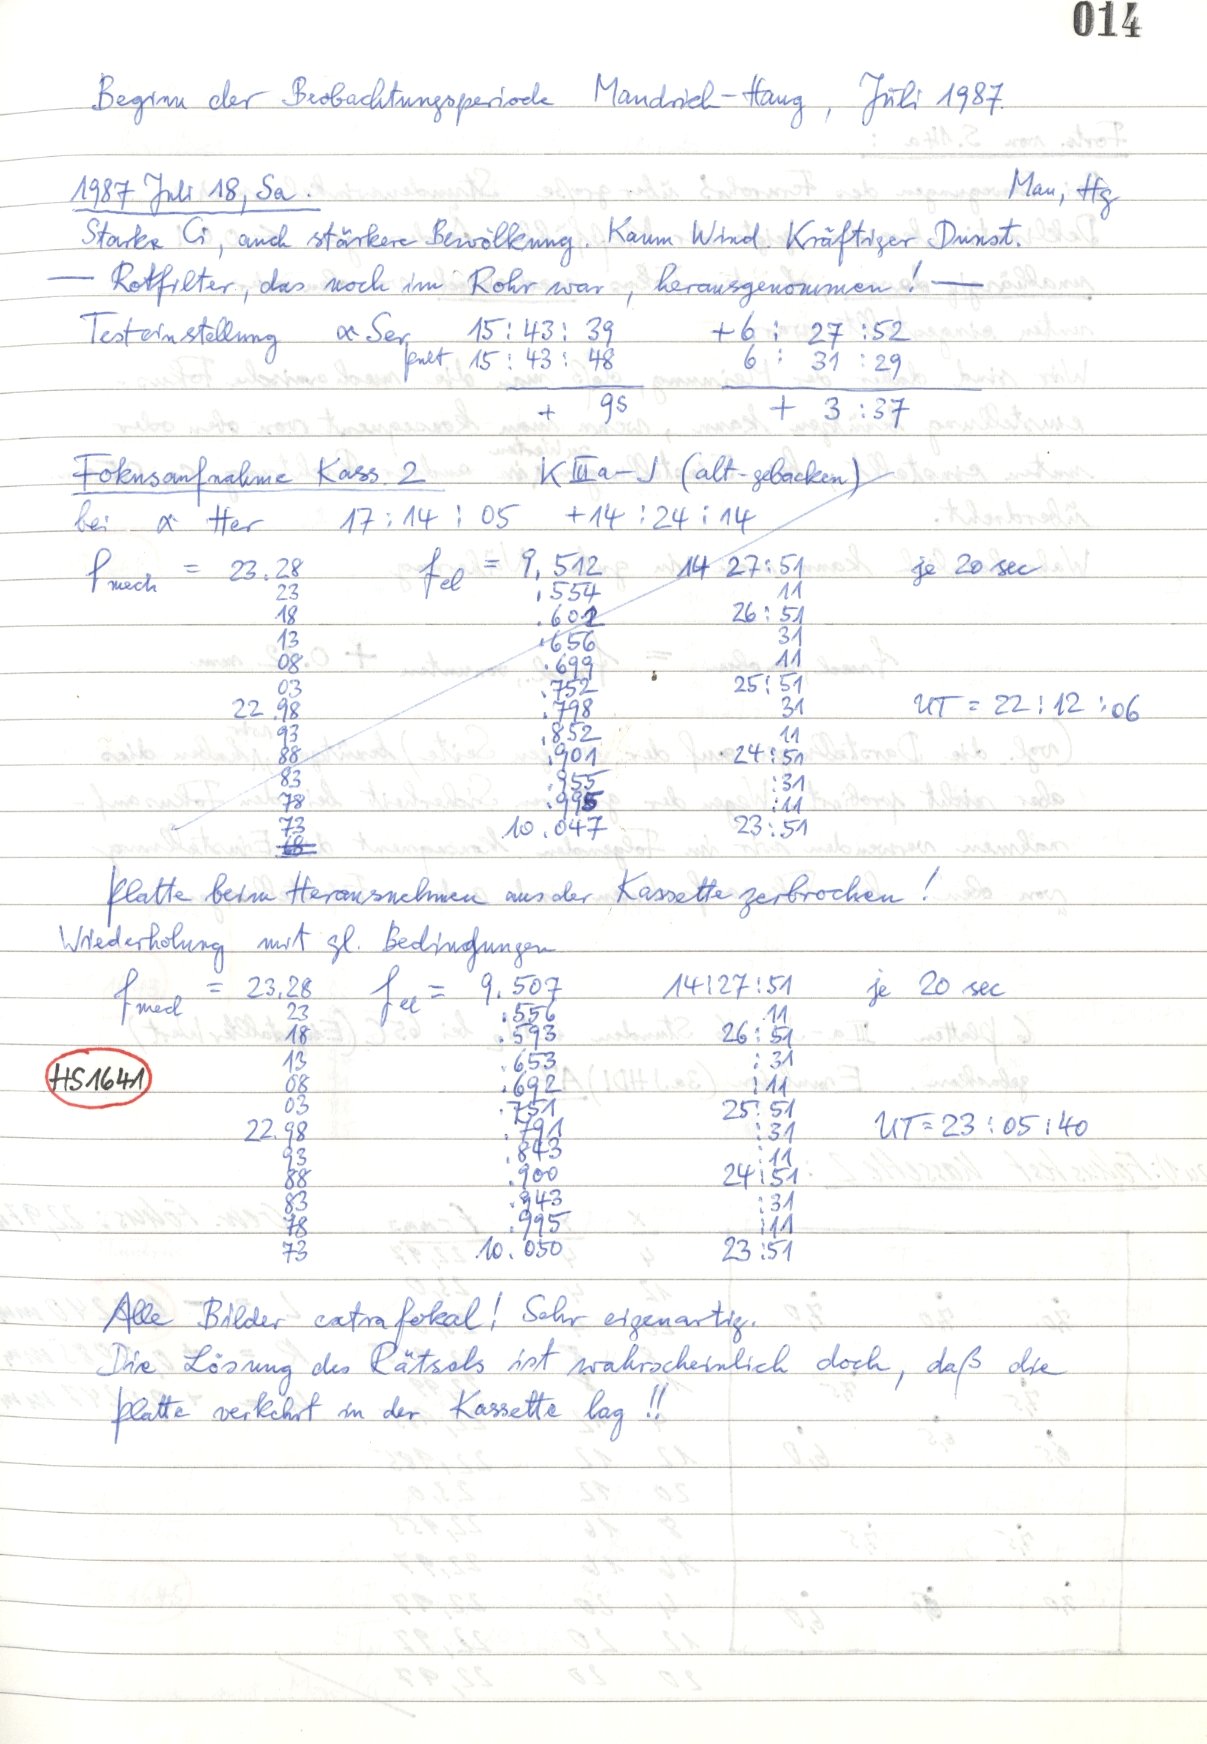 014
Beginn der Beobachtungsperiode Mandrich-Haug, Juli 1987
1987 Juli 18, Sa.
Man, Hg
Starke Ci, auch stärkere Bewölkung. Kaum Wind. Kräftiger Dunst.
— Rotfilter, das noch im Rohr war, herausgenommen! —
Testeinstellung α Ser 15:43:39 +6:27:52
pult 15:43:48 6:31:29
+ 9s + 3:37
Fokusaufnahme Kass. 2 K III a-J (alt-gebacken)
bei α Her 17:14:05 +14:24:14
f mech = 23.28 f el = 9,512 14 27:51 je 20 sec
23 .554 11
18 .601 26:51
13 .656 31
08 .699 11
03 .752 25:51
22.98 .798 31 UT = 22:12:06
93 .852 11
88 .901 24:51
83 .955 :31
78 .995 :11
73 10.047 23:51
68
Platte beim Herausnehmen aus der Kassette zerbrochen!
Wiederholung mit gl. Bedingungen
f mech = 23.28 f el = 9.507 14:27:51 je 20 sec
23 .556 11
18 .593 26:51
13 .653 :31
HS1641
08 .692 :11
03 .751 25:51
22.98 .791 :31 UT = 23:05:40
93 .843 :11
88 .900 24:51
83 .943 :31
78 .995 :11
73 10.050 23:51
Alle Bilder extrafokal! Sehr eigenartig.
Die Lösung des Rätsels ist wahrscheinlich doch, daß die
Platte verkehrt in der Kassette lag!!